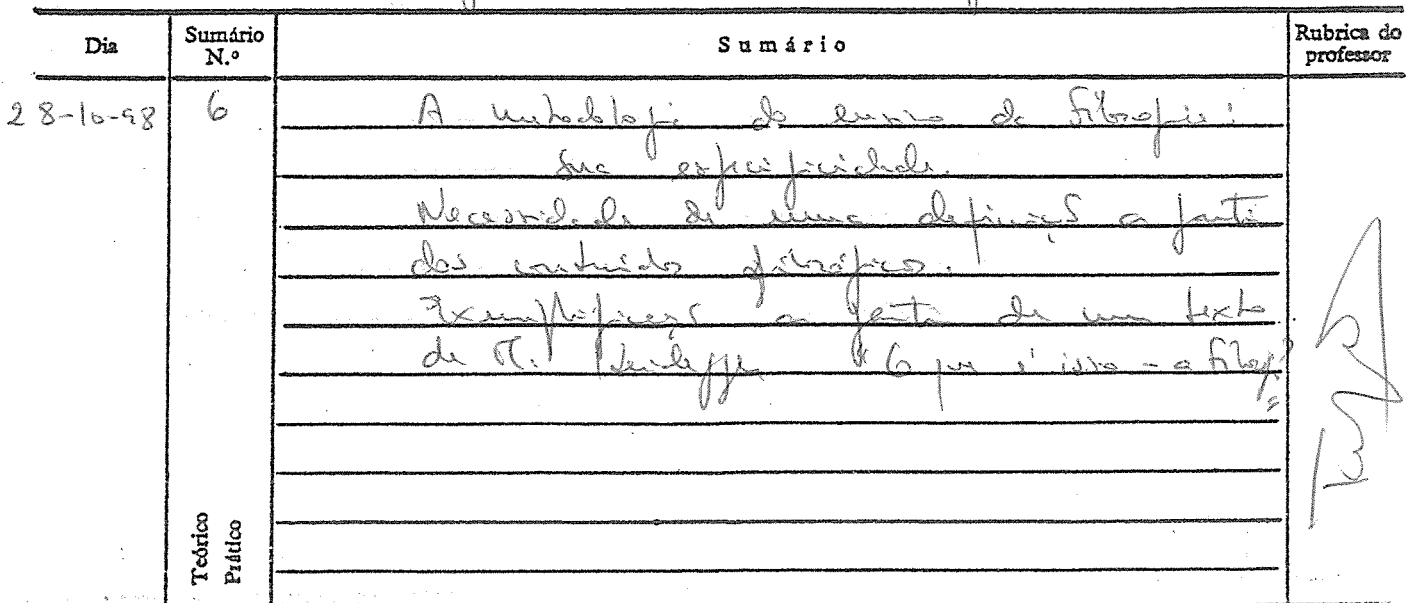 Dia Sumário N.º Sumário Rubrica do professor
28-10-98 6 A metodologia do ensino da Filosofia:
sua especificidade.
Necessidade de uma definição a partir
dos conteúdos filosóficos.
Exemplificação a partir de um texto
de M. Heidegger "O que é isso - a filosofia
Teórico
Prático